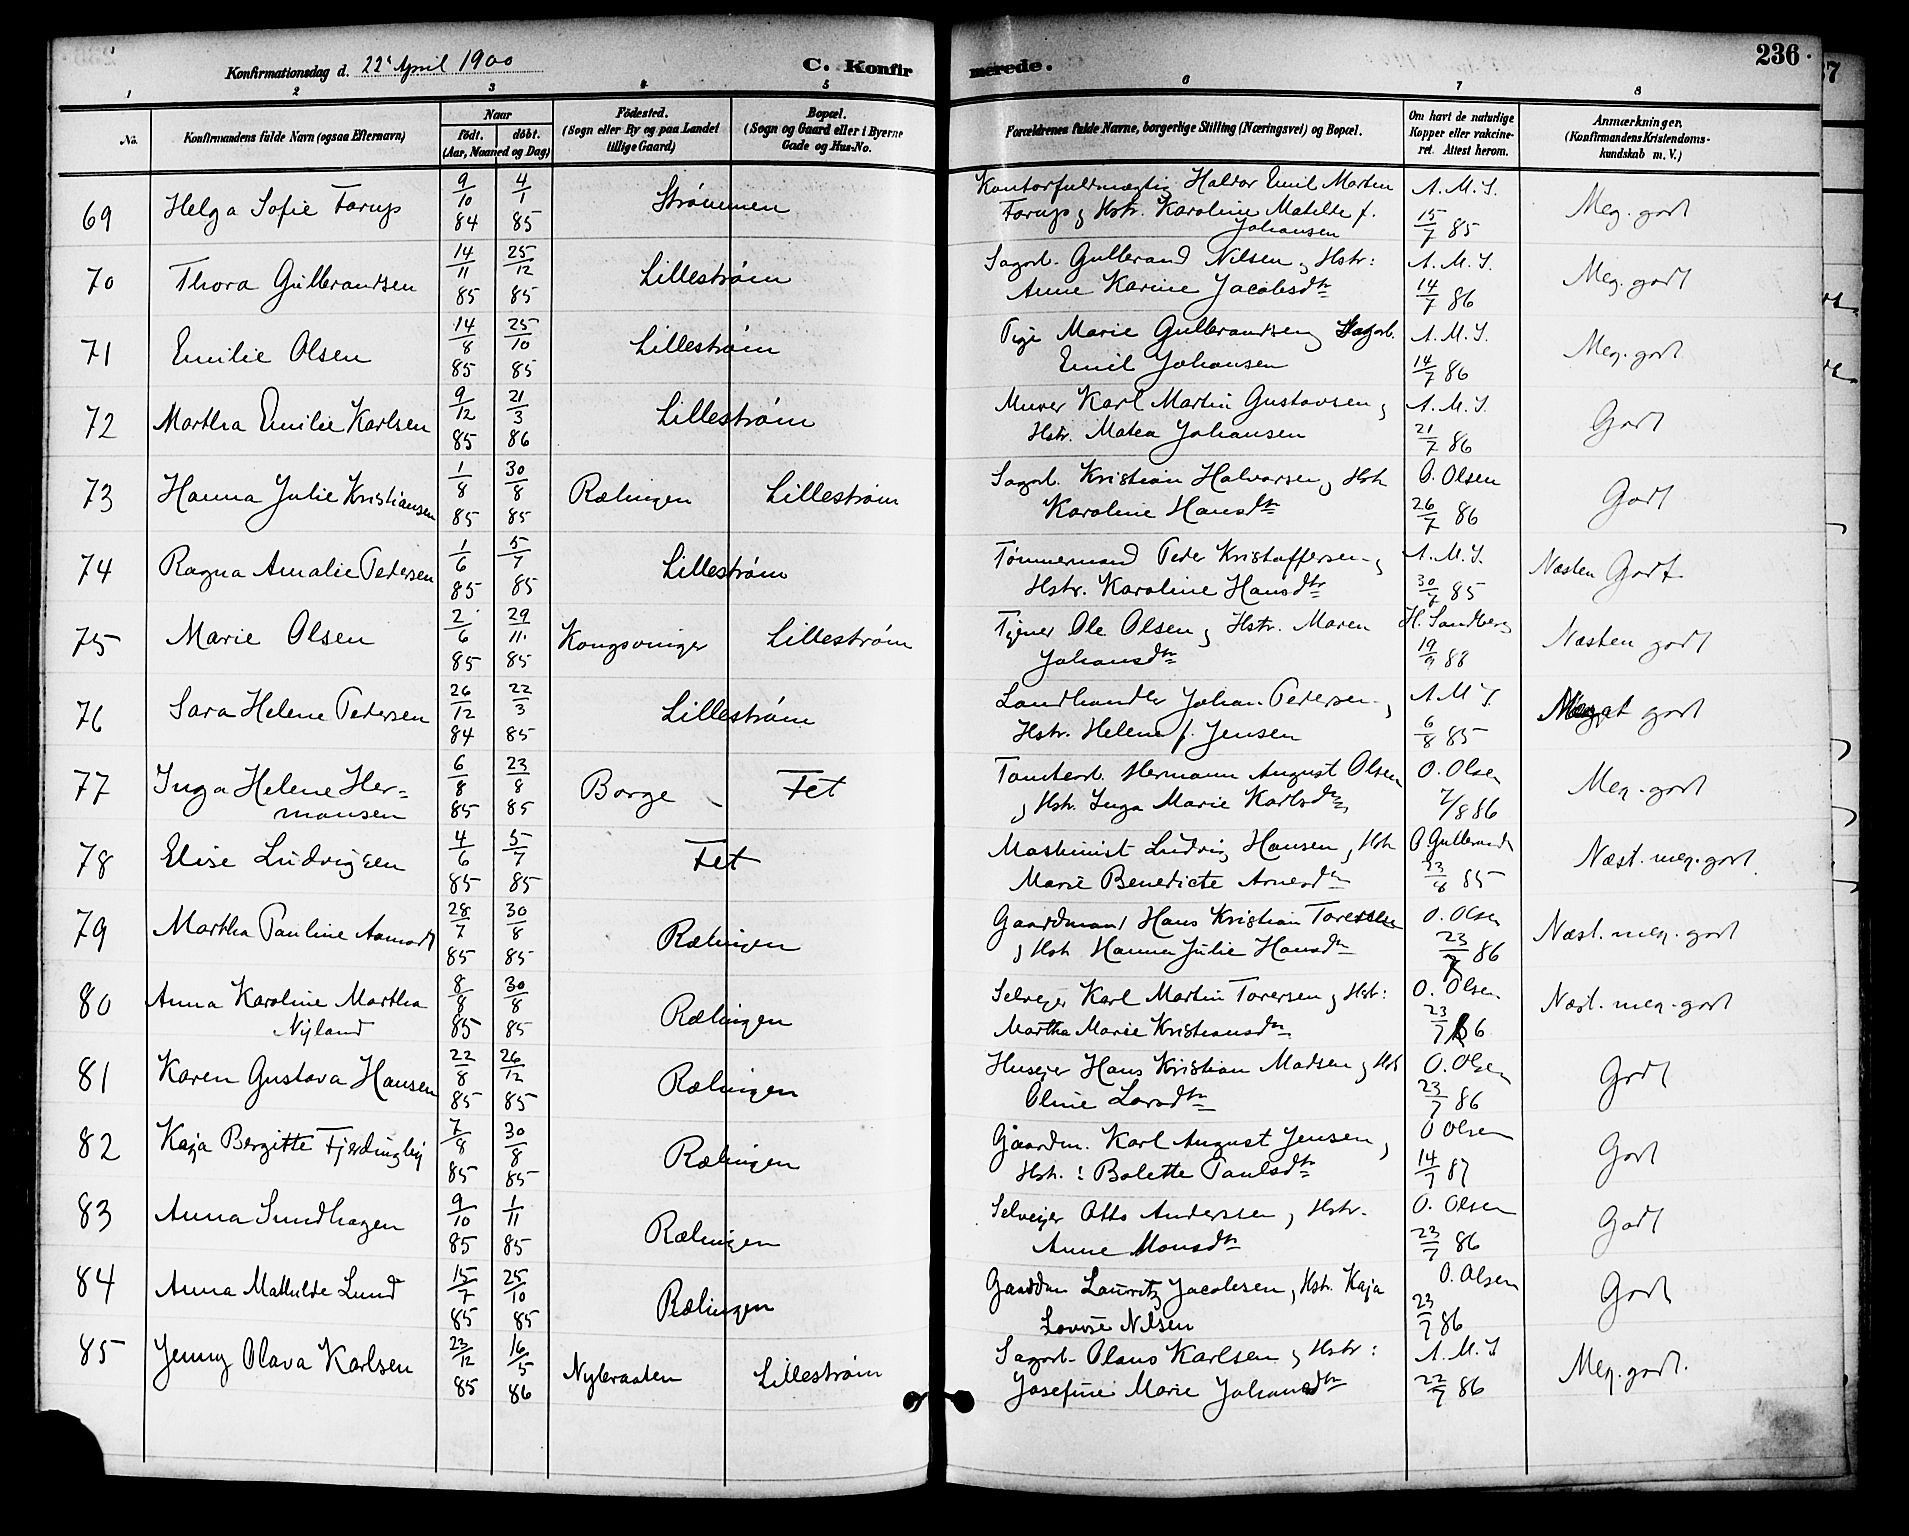 Konfirmationsdag d. 22' April 1900 C. Konfir merede. 236
1 2 3 4 5 6 7 8
No. Konfirmandens fulde Navn (ogsaa Efternavn) Naar födt. döbt. (Aar, Maaned og Dag) Födested. (Sogn eller By og paa Landet tillige Gaard) Bopæl. (Sogn og Gaard eller i Byerne Gade og Hus-No. Forældrenes fulde Navne, borgerlige Stilling (Næringsvei) og Bopæl. Om havt de naturlige Kopper eller vakcineret. Attest herom. Anmærkninger. (Konfirmandens Kristendomskundskab m. V.)
69 Helga Sofie Forup 9/10 84 4/1 85 Strömmen Kontorfuldmægtig Haldor Emil Martin
Forup, Hstr. Karoline Matilde f. Johansen A. M. S. 15/7 85 Meg. godt
70 Thora Gulbrandsen 14/11 85 25/12 85 Lillestrøm Sagarb. Gulbrand Nilsen, Hstr:
Anne Karine Jacobsdtr A. M. S. 14/7 86 Meg. godt
71 Emilie Olsen 14/8 85 25/10 85 Lillestrøm Pige Marie Gulbrandsen, Sagarb.
Emil Johansen A. M. S. 14/7 86 Meg. godt
72 Martha Emilie Karlsen 9/12 85 21/3 86 Lillestrøm Murer Karl Martin Gustavsen,
Hstr. Matea Johansen A. M. S. 21/7 86 Godt
73 Hanna Julie Kristiansen 1/8 85 30/8 85 Rælingen Lillestrøm Sagarb. Kristian Halvorsen, Hstr
Karoline Hansdtr O. Olsen 26/7 86 Godt
74 Ragna Amalie Pedersen 1/6 85 5/7 85 Lillestrøm Tømmermand Peder Kristoffersen,
Hstr. Karoline Hansdtr A. M. S. 30/7 85 Næsten Godt
75 Marie Olsen 2/6 85 29/11 85 Kongsvinger Lillestrøm Tjener Ole Olsen, Hstr. Maren
Johansdtr H. Sandberg 19/9 88 Næsten godt
76 Sara Helene Pedersen 26/12 84 22/3 85 Lillestrøm Landhandler Johan Pedersen,
Hstr. Helene f. Jensen A M S 6/8 85 godt
77 Inga Helene Her=
mansen 6/8 85 23/8 85 Borge - Fet Tomtearb. Hermann August Olsen
, Hstr. Inga Marie Karlsdtr O. Olsen 7/8 86 Meg. godt
78 Elise Ludvigsen 4/6 85 5/7 85 Fet Maskinist Ludvig Hansen, Hstr
Marie Benedicte Arnesdtr 85 Næst. meg. godt.
79 Martha Pauline Aamodt 28/7 85 30/8 85 Rælingen Gaardmand Hans Kristian
, Hstr Hanna Julie Hansdtr O. Olsen 23/7 86 Næst. meg. godt
80 Anna Karoline Martha
Nyland 8/8 85 30/8 85 Rælingen Selveier Karl Martin Toversen, Hstr:
Martha Marie Kristiansdtr O. Olsen 23/7 86 Næst. meg. godt
81 Karen Gustava Hansen 22/8 85 26/12 85 Rælingen Huseier Hans Kristian Madsen, Hstr
Oline Larsdtr O. Olsen 23/7 86 Godt
82 Kaja Bergitte Fjerdingby 7/8 85 30/8 85 Rælingen Gaardm. Karl August Jensen,
Hstr.: Bolette Paulsdtr O Olsen 14/7 87 Godt
83 Anna Sundhagen 9/10 85 1/11 85 Rælingen Selveier Otto Anderssen, Hstr.
Anne Monsdtr O. Olsen 23/7 86 Godt
84 Anna Mathilde Lund 15/7 85 25/10 85 Rælingen Gaardm Lauritz Jacobsen, Hstr. Kaja
Lovise Nilsen O. Olsen 23/7 86 Godt
85 Jenny Olava Karlsen 23/12 85 16/5 86 Nybraaten Lillestrøm Sagarb. Olaus Karlsen, Hstr:
Josefine Marie Johansdtr A. M. S 22/7 86 Meg. godt.